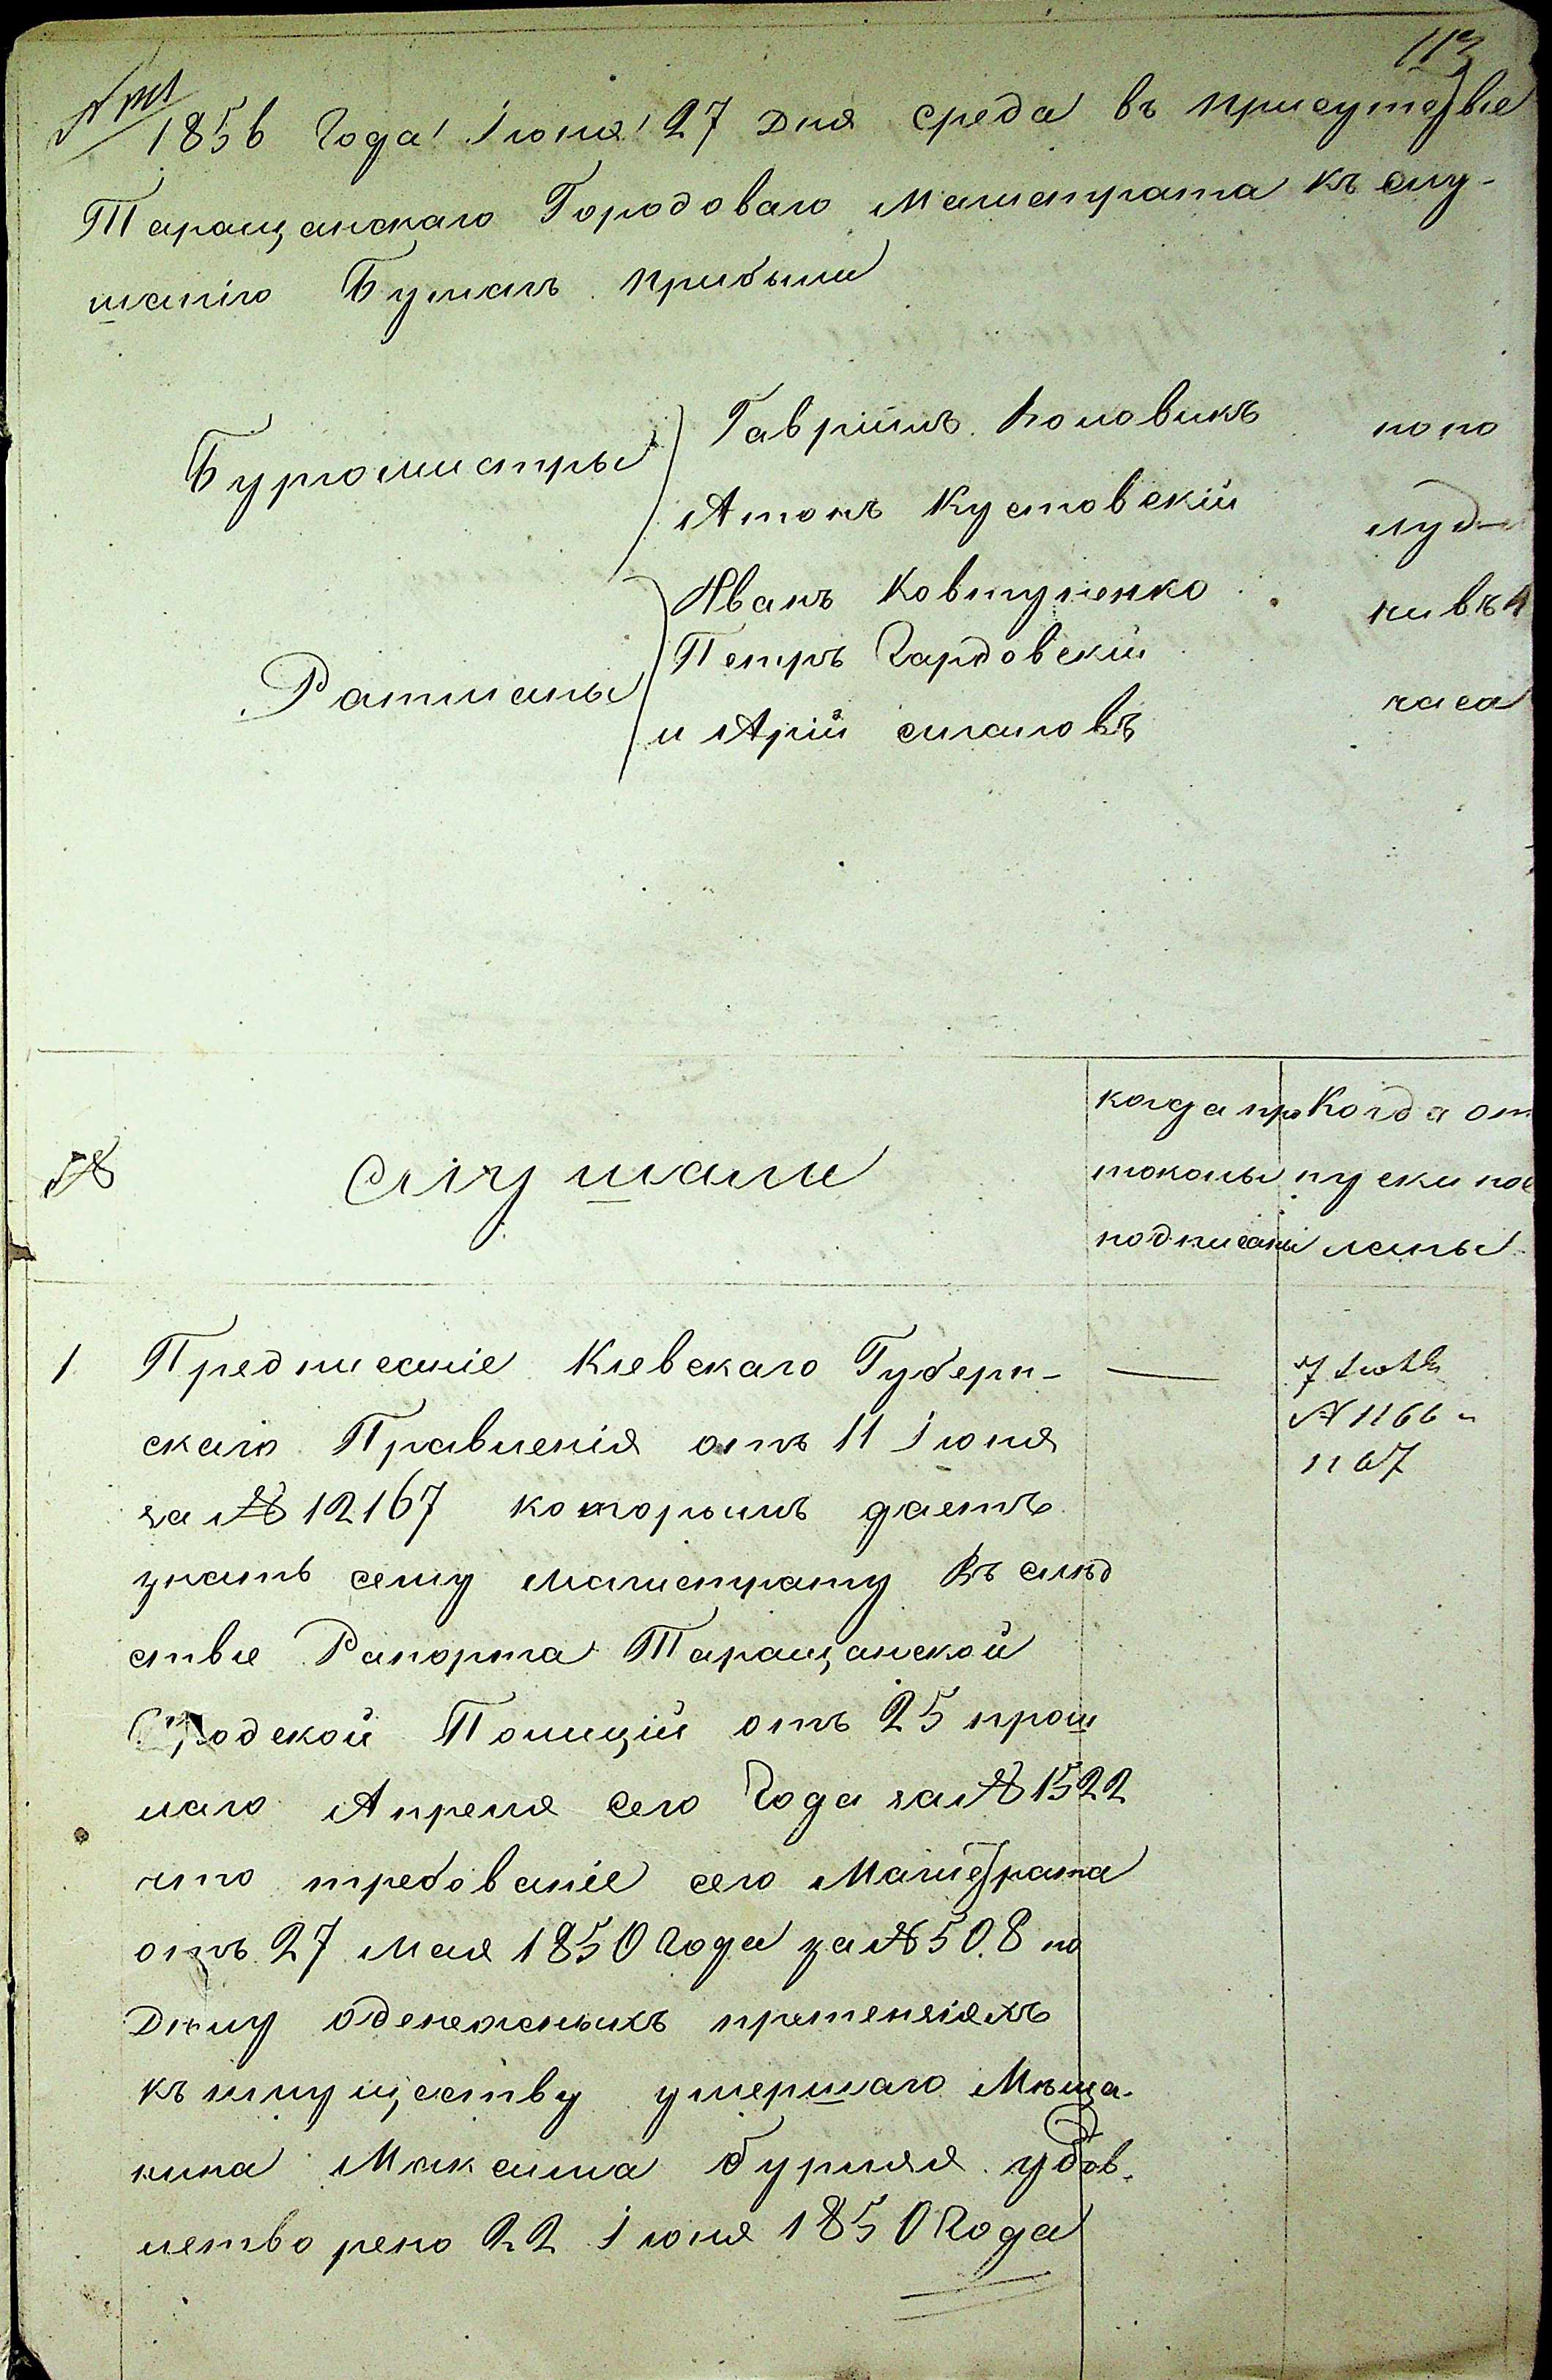 113
1856 Года Іюня 27 дня среда въ присутствіе
Таращанскаго Городоваго Магистрата къ слу-
шанію Бумагъ прибыли
Бургомистры
Гавріилъ Коловикъ
Антонъ Кустовскій
Ратманы
Иванъ Ковтуненко
Петръ Гардовскій
и Арій
попо
луд-
ни въ 4
часа
№
Слушали
когда про
токолы
подписаны
Когда от
пуски пос
ланы
1 Предписаніе Кіевскаго Губерн-
скаго Правленія отъ 11 Іюня
за № 12167 которымъ даетъ
знать сему магистрату въ слѣд
ствіе Рапорта Таращанской
Градской Полиціи отъ 25 прош
лаго Апреля сего Года за № 1522
что требованіе сего Магистрата
отъ 27 мая 1850 года за № 508 по
дѣлу о денежныхъ претензіяхъ
къ имуществу умершаго Мѣща-
нина Максима Бурлая удов-
летворено 22 Іюня 1850 Года
—
7 Іюля
№ 1166 и
1167